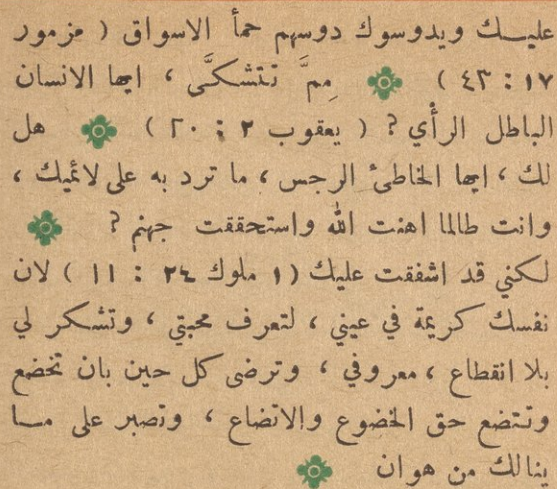 عليك ويدوسوك دوسهم حمأ الاسواق ( مزمور
١٧ : ٤٣ ) مِمَّ تتشكَّى ، ايها الانسان
الباطل الرأي ? ( يعقوب ٢ : ٢٠ ) هل
لك ، ايها الخاطئ الرجس ، ما ترد به على لائميك ،
وانت طالما اهنت الله واستحققت جهنم ?
لكني قد اشفقت عليك (١ ملوك ٢٤ : ١١ ) لان
نفسك كريمة في عيني ، لتعرف محبتي ، وتشكر لي
بلا انقطاع ، معروفي ، وترضى كل حين بان تخضع
وتتضع حق الخضوع والاتضاع ، وتصبر على مـا
ينالك من هوان